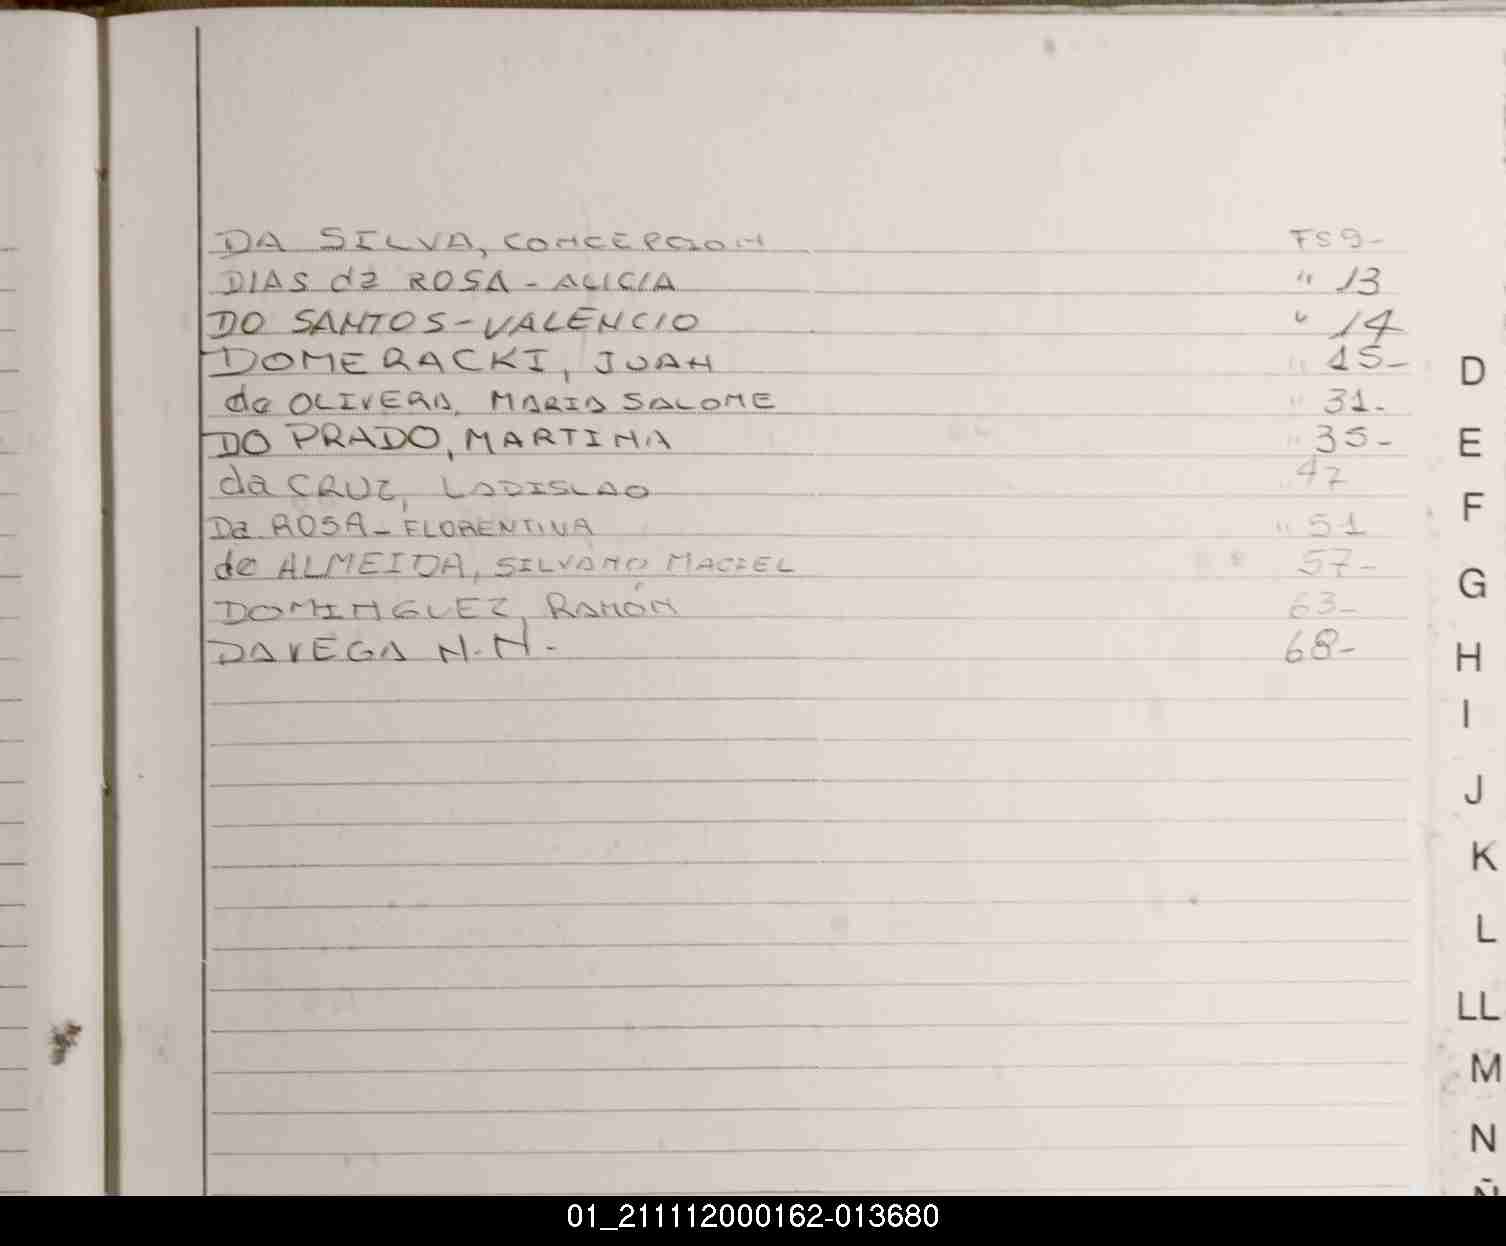 DA SILVA, CONCEPCION FS 9-
DIAS da ROSA - ALICIA " 13
DO SANTOS - VALENCIO " 14
DOMERACKI, JUAN " 15-
de OLIVERA, MARIA SALOME " 31-
DO PRADO, MARTINA " 35-
da CRUZ, LADISLAO 47
Da ROSA - FLORENTINA " 51
de ALMEIDA, SILVANO MACIEL 57-
DOMINGUEZ, RAMÓN 63-
DAVEGA N.N.- 68-
D
E
F
G
H
I
J
K
L
LL
M
N
Ñ
01_211112000162-013680